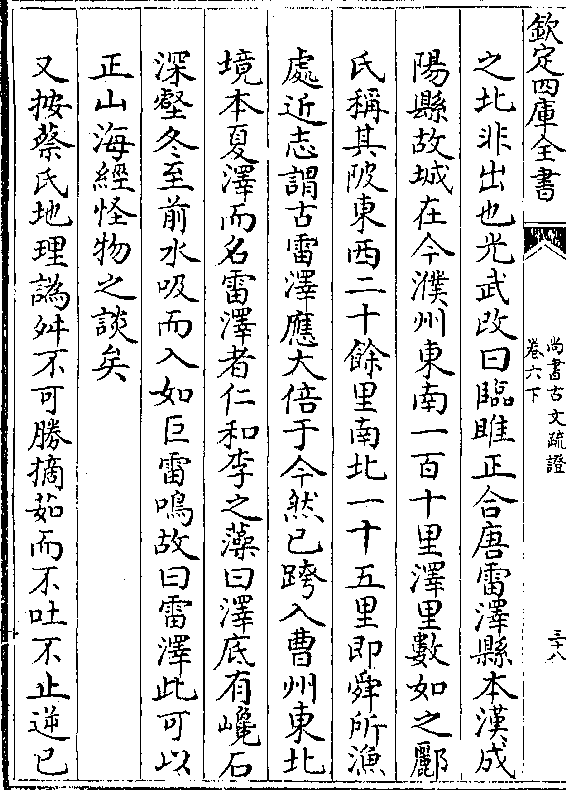 欽定四庫全書
尚書古文疏證
卷六下
三十八
之北非出也光武改曰臨睢正合唐雷澤縣本漢成
陽縣故城在今濮州東南一百十里澤里數如之酈
氏稱其陂東西二十餘里南北一十五里即舜所漁
處近志謂古雷澤應大倍于今然已跨入曹州東北
境本夏澤而名雷澤者仁和李之藻曰澤底有巉石
深壑冬至前水吸而入如巨雷鳴故曰雷澤此可以
正山海經怪物之談矣
又按蔡氏地理譌舛不可勝摘茹而不吐不止逆已